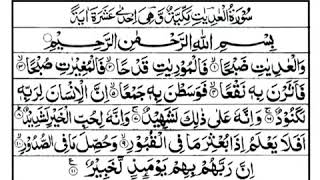 سُوْرَةُ الْعٰدِيٰتِ مَكِّيَّةٌ وَّهِيَ اِحْدٰى عَشَرَةَ اٰيَةً
بِسْمِ اللهِ الرَّحْمٰنِ الرَّحِيْمِ
وَالْعٰدِيٰتِ ضَبْحًا ۙ۝۱ فَالْمُوْرِيٰتِ قَدْحًا ۙ۝۲ فَالْمُغِيْرٰتِ صُبْحًا ۙ۝۳
فَاَثَرْنَ بِهٖ نَقْعًا ۙ۝۴ فَوَسَطْنَ بِهٖ جَمْعًا ۙ۝۵ اِنَّ الْاِنْسَانَ لِرَبِّهٖ
لَكَنُوْدٌ ۚ۝۶ وَاِنَّهٗ عَلٰى ذٰلِكَ لَشَهِيْدٌ ۚ۝۷ وَاِنَّهٗ لِحُبِّ الْخَيْرِ لَشَدِيْدٌ ؕ۝۸
اَفَلَا يَعْلَمُ اِذَا بُعْثِرَ مَا فِى الْقُبُوْرِ ۙ۝۹ وَحُصِّلَ مَا فِى الصُّدُوْرِ ۙ۝۱۰
اِنَّ رَبَّهُمْ بِهِمْ يَوْمَئِذٍ لَّخَبِيْرٌ ۝۱۱